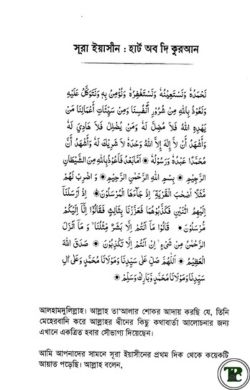 সূরা ইয়াসীন : হার্ট অব দি কুরআন
نَحْمَدُهُ وَنَسْتَعِيْنُهُ وَنَسْتَغْفِرُهُ وَنُؤْمِنُ بِهِ وَنَتَوَكَّلُ عَلَيْهِ
وَنَعُوْذُ بِاللهِ مِنْ شُرُوْرِ أَنْفُسِنَا وَمِنْ سَيِّئَاتِ أَعْمَالِنَا مَنْ
يَهْدِهِ اللهُ فَلَا مُضِلَّ لَهُ وَمَنْ يُضْلِلْ فَلَا هَادِيَ لَهُ
وَأَشْهَدُ أَنْ لَا إِلٰهَ إِلَّا اللهُ وَحْدَهُ لَا شَرِيْكَ لَهُ وَأَشْهَدُ أَنَّ
مُحَمَّدًا عَبْدُهُ وَرَسُوْلُهُ أَمَّا بَعْدُ فَأَعُوْذُ بِاللهِ مِنَ الشَّيْطَانِ
الرَّجِيْمِ بِسْمِ اللهِ الرَّحْمٰنِ الرَّحِيْمِ وَ اضْرِبْ لَهُمْ
مَثَلًا أَصْحٰبَ الْقَرْيَةِ إِذْ جَاءَهَا الْمُرْسَلُوْنَ إِذْ أَرْسَلْنَا
إِلَيْهِمُ اثْنَيْنِ فَكَذَّبُوْهُمَا فَعَزَّزْنَا بِثَالِثٍ فَقَالُوْا إِنَّا إِلَيْكُمْ
مُرْسَلُوْنَ قَالُوْا مَا أَنْتُمْ إِلَّا بَشَرٌ مِثْلُنَا وَ مَا أَنْزَلَ
الرَّحْمٰنُ مِنْ شَيْءٍ إِنْ أَنْتُمْ إِلَّا تَكْذِبُوْنَ صَدَقَ اللهُ
الْعَظِيْمُ اَللّٰهُمَّ صَلِّ عَلٰى سَيِّدِنَا وَمَوْلَانَا مُحَمَّدٍ وَعَلٰى اٰلِ
سَيِّدِنَا وَمَوْلَانَا مُحَمَّدٍ وَّبَارِكْ وَسَلِّمْ
আলহামদুলিল্লাহ। আল্লাহ তা'আলার শোকর আদায় করছি যে, তিনি
মেহেরবানি করে আল্লাহর দ্বীনের কিছু কথাবার্তা আলোচনার জন্য
এখানে একত্রিত হবার সৌভাগ্য দিয়েছেন।
আমি আপনাদের সামনে সূরা ইয়াসীনের প্রথম দিক থেকে কয়েকটি
আয়াত পড়েছি। আল্লাহ বলেন,